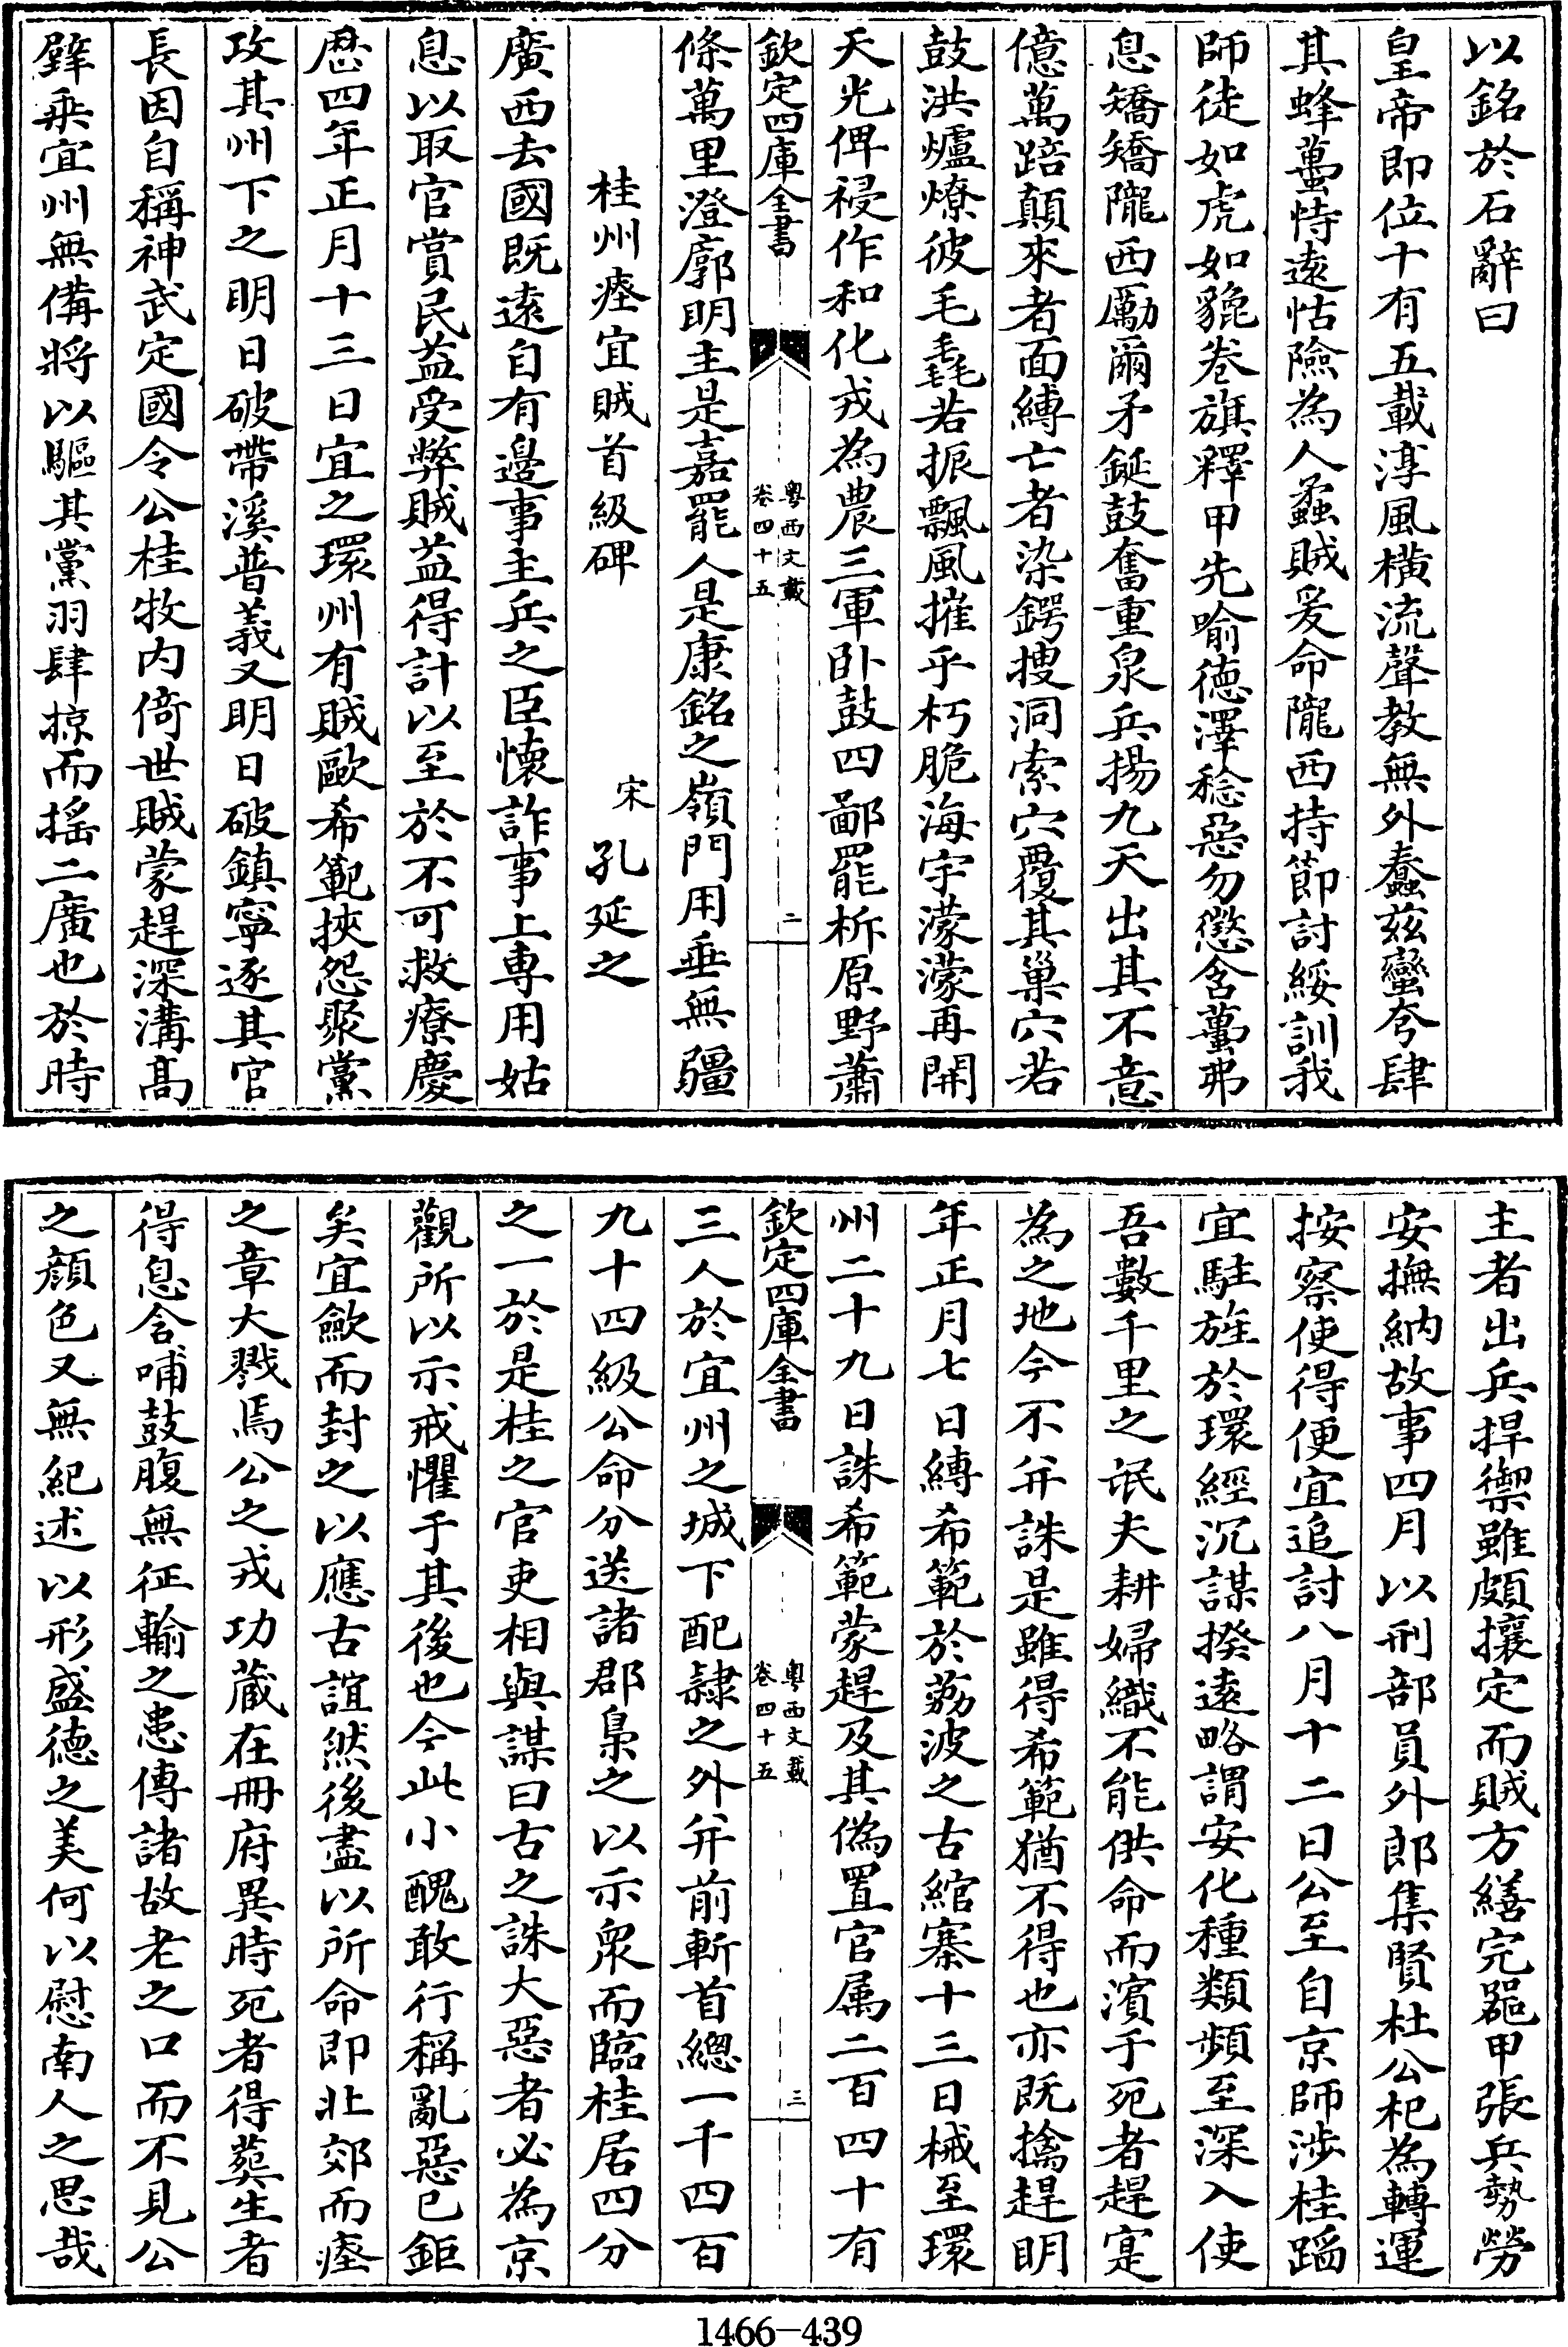 以銘於石辭曰
皇帝即位十有五載淳風横流聲教無外蠢兹蠻夸肆
其蜂蠆恃遠怙險為人蟊賊爰命隴西持節討綏訓我
師徒如虎如貔卷旗釋甲先喻德澤稔惡勿懲含蠆弗
息矯矯隴西勵爾矛鋋鼓奮重泉兵揚九天出其不意
億萬踣顛來者面縛亡者染鍔搜洞索穴覆其巢穴若
鼓洪爐燎彼毛毳若振飄風摧乎朽脆海宇濛濛再開
天光俾祲作和化戎為農三軍卧鼓四鄙罷柝原野蕭
欽定四庫全書
粤西文載
卷四十五
二
條萬里澄廓明主是嘉罷人是康銘之嶺門用垂無疆
桂州瘞宜賊首級碑
宋
孔延之
廣西去國既遠自有邊事主兵之臣懷詐事上専用姑
息以取官賞民益受弊賊益得計以至於不可救療慶
歴四年正月十三日宜之環州有賊歐希範挾怨聚黨
攻其州下之明日破帶溪普義又明日破鎮寧逐其官
長因自稱神武定國令公桂牧内倚世賊蒙趕深溝髙
壁乗宜州無備將以驅其黨羽肆掠而揺二廣也於時
主者出兵捍禦雖頗攘定而賊方繕完噐甲張兵勢勞
安撫納故事四月以刑部員外郎集賢杜公杞為轉運
按察使得便宜追討八月十二日公至自京師涉桂蹈
宜駐旌於環經沉謀揆逺略謂安化種類頻至深入使
吾數千里之氓夫耕婦織不能供命而濱于死者趕寔
為之地今不并誅是雖得希範猶不得也亦既擒趕明
年正月七日縛希範於荔波之古綰寨十三日械至環
州二十九日誅希範蒙趕及其偽置官属二百四十有
欽定四庫全書
粤西文載
卷四十五
三
三人於宜州之城下配隷之外并前斬首總一千四百
九十四級公命分送諸郡梟之以示衆而臨桂居四分
之一於是桂之官吏相與謀曰古之誅大惡者必為京
觀所以示戒懼于其後也今此小醜敢行稱亂惡已鉅
矣宜歛而封之以應古誼然後盡以所命即北郊而瘞
之章大戮焉公之戎功蔵在冊府異時死者得葬生者
得息含哺鼓腹無征輸之患傳諸故老之口而不見公
之顔色又無紀述以形盛徳之美何以慰南人之思哉
1466-439